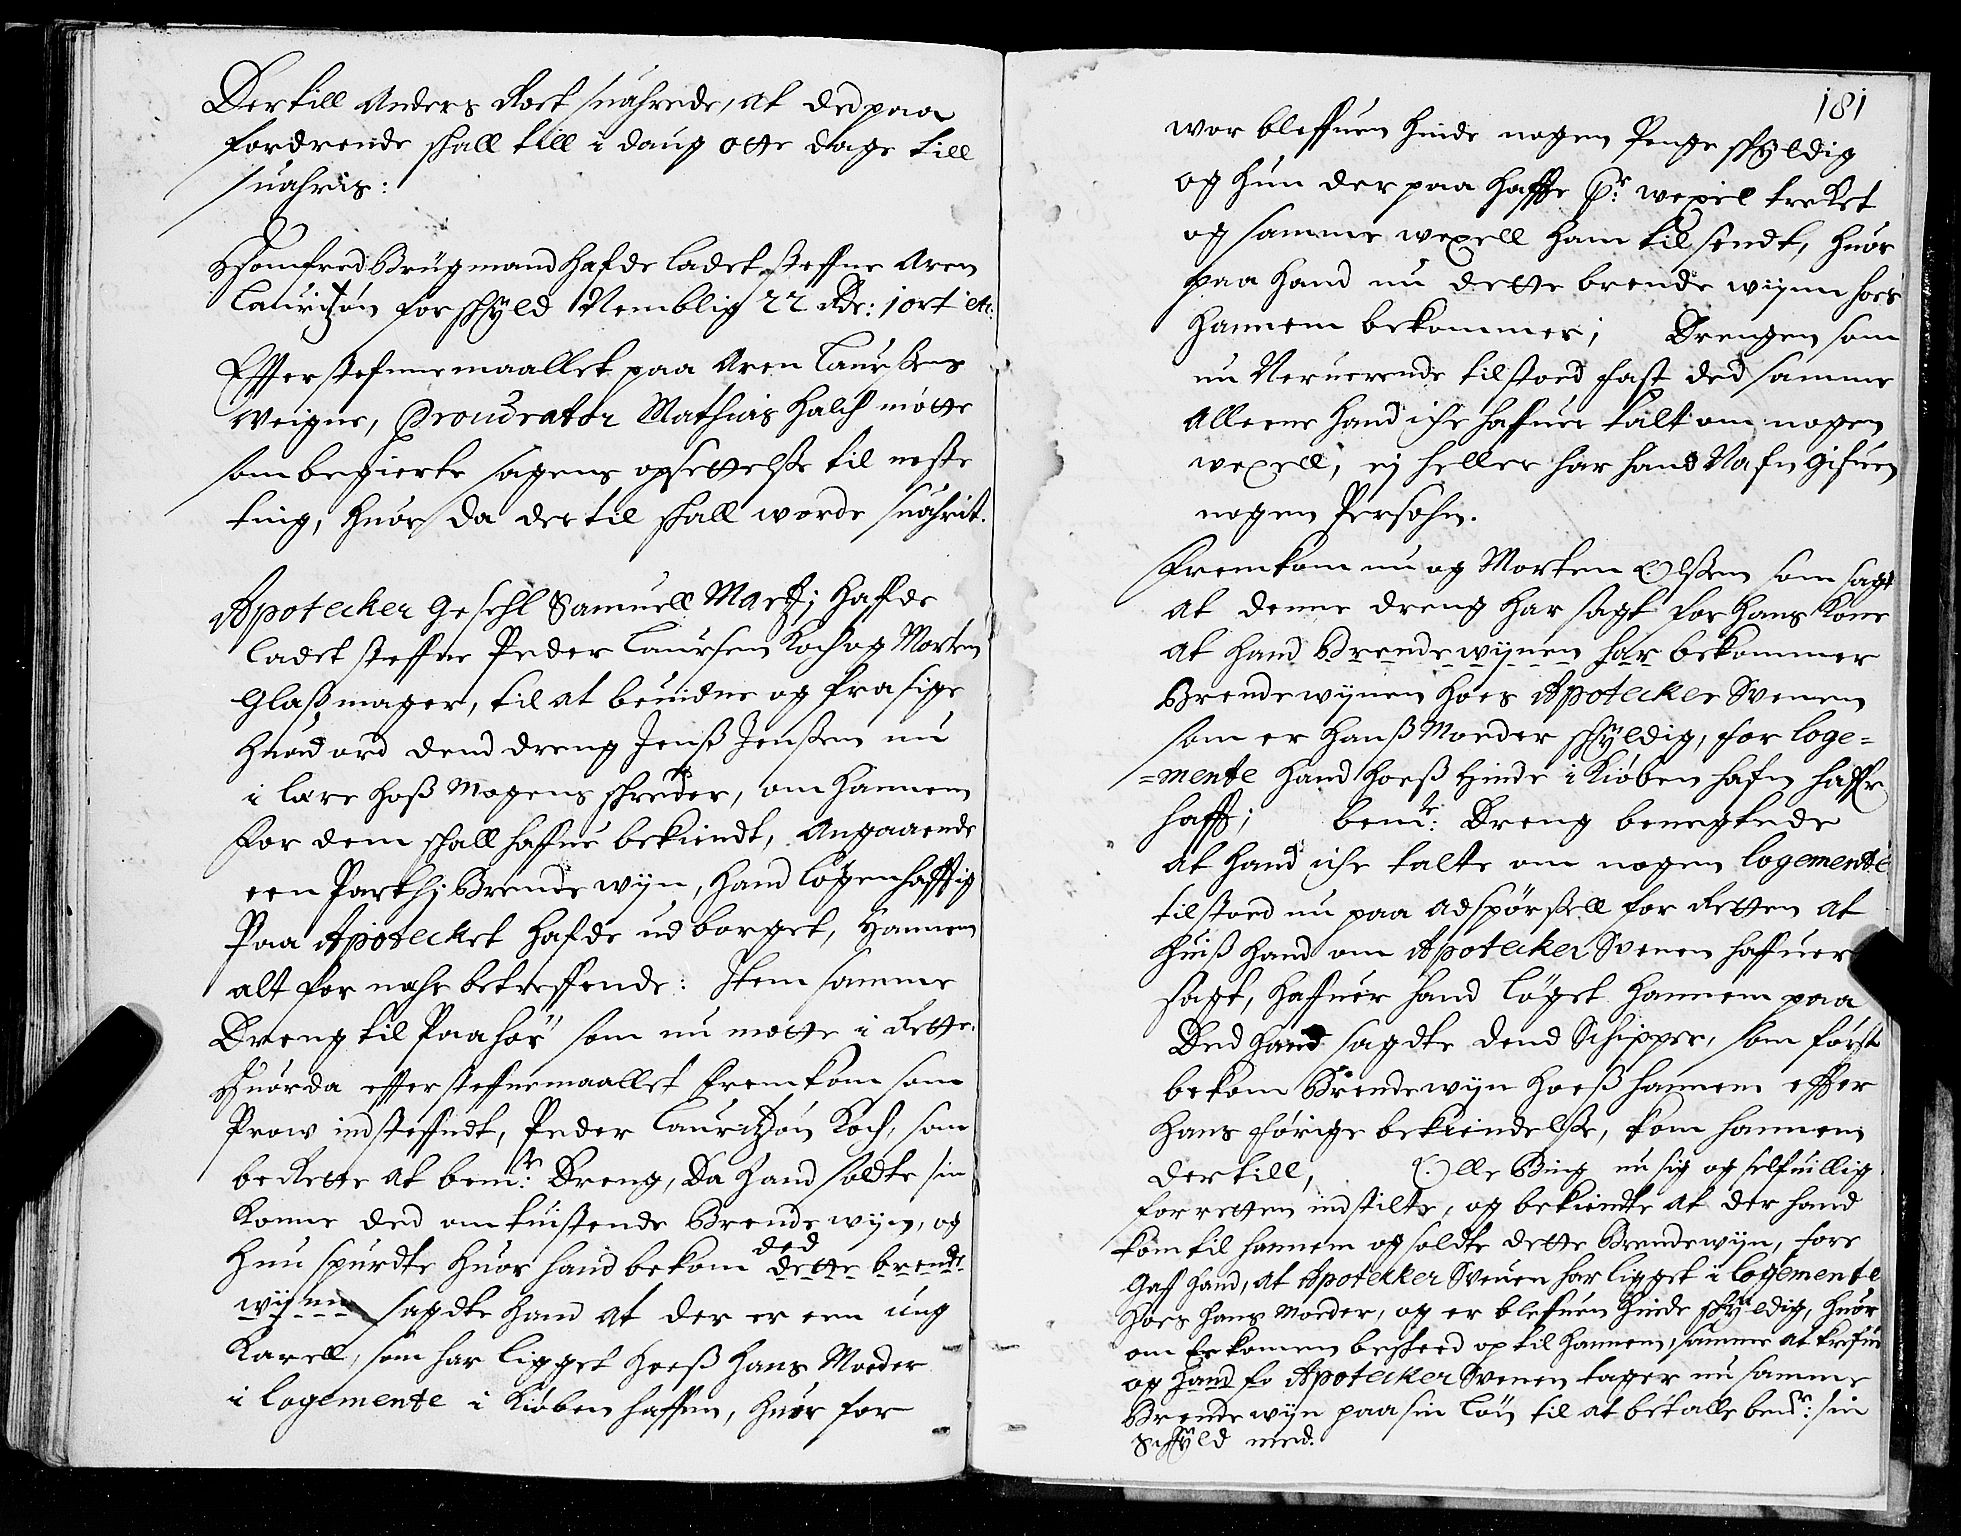 Dertill Anders Rost suahrede, at ded paa
fordrende shall till i daug otte dage till
suahris:
Gomfred Brügmand hafde ladet steffne Aren
Lauridzøn for shÿld Nemblig 22 Rdr: 1 ort etc:
Effter stefnemaallet paa Aren Laursens
Weigne, Procurator Mathias Falch møtte
som begierte sagens opsettelsse til neste
ting, huor da dertil shall worde suahrit.
Apotecker Gesehl Samuell Martj hafde
ladet steffne Peder Laursen Koch og Morten
Glaßmager, til at beuidne og fra sige
huad ord dend dreng Jenß Jenssen nu
i lære hoß Mogens shreder, om hannem
for dem shall haffue bekiendt, Angaaende
een Parthj Brendewijn, hand løgenhafftig
Paa Apotecket hafde udborget, Hannem
alt for nahr betreffende: Item samme
Dreng til Paahør som nu møtte i Rette.
Huorda effter stefnemaallet fremkom som
Prow indsteffndt, Peder Lauridzøn Koch, som
be Rette at bemte: Dreng, da hand soldte sin
Konne ded omtuistende Brendewijn, og
hun spurdte huor hand bekom ded dette brende
wijnn sagdte hand at der er een ung
Karell, som har ligget hoeß hans Moeder
i logemente i Kiøbenhaffen, huor for
181
wor bleffuen hinde nogen Penge shÿldig
og hun der paa haffr pr. wexel trecket
og samme wexell ham tilsendt, huor
paa hand nu dette brendewijnn hoes
hannem bekommer; Drengen som
nu Neruerende tilstoed fast ded samme
Alleene hand iche haffuer talt om nogen
wexell, ej heller har hand Nafn gifuen
nogen Persohn.
Fremkom nu og Morten Olssen som sagt
at denne dreng har sagt for hans Kone
at hand Brendewijnen har bekommer
Brendewijnen hoes Apotecker Svenen
som er hanß Moeder shÿldig, for loge=
=mente hand hoeß hinde i Kiøbenhafn haffr
hafft; bemte: Dreng benegtede
at hand iche talte om nogen logemente
tilstoed nu paa adspørssell for Retten at
huiß hand om Apotecker Svenen haffuer
sagt, haffuer hand løget hannem paa
Ded hand sagdte dend Schipper, som først
bekom Brendewijn hoeß hannem effter
hans forige bekiendelsse, kom hannem
dertill, Olle Bing nu sig og selfuillig
for retten indstilte, og bekiendte at der hand
kom til hannem og soldte dette Brendewijn, fore
gaf hand, at Apotecker Svenen har ligget i logemente
hoes hans Moeder, og er blefuen hinde shÿldig, huor
om er komen besheed op til hannem, samme at krefue
og hand fo Apotecker Svenen tager nu samme
Brendewijn paa sin løn til at betalle bemte: sin
Schÿld med.